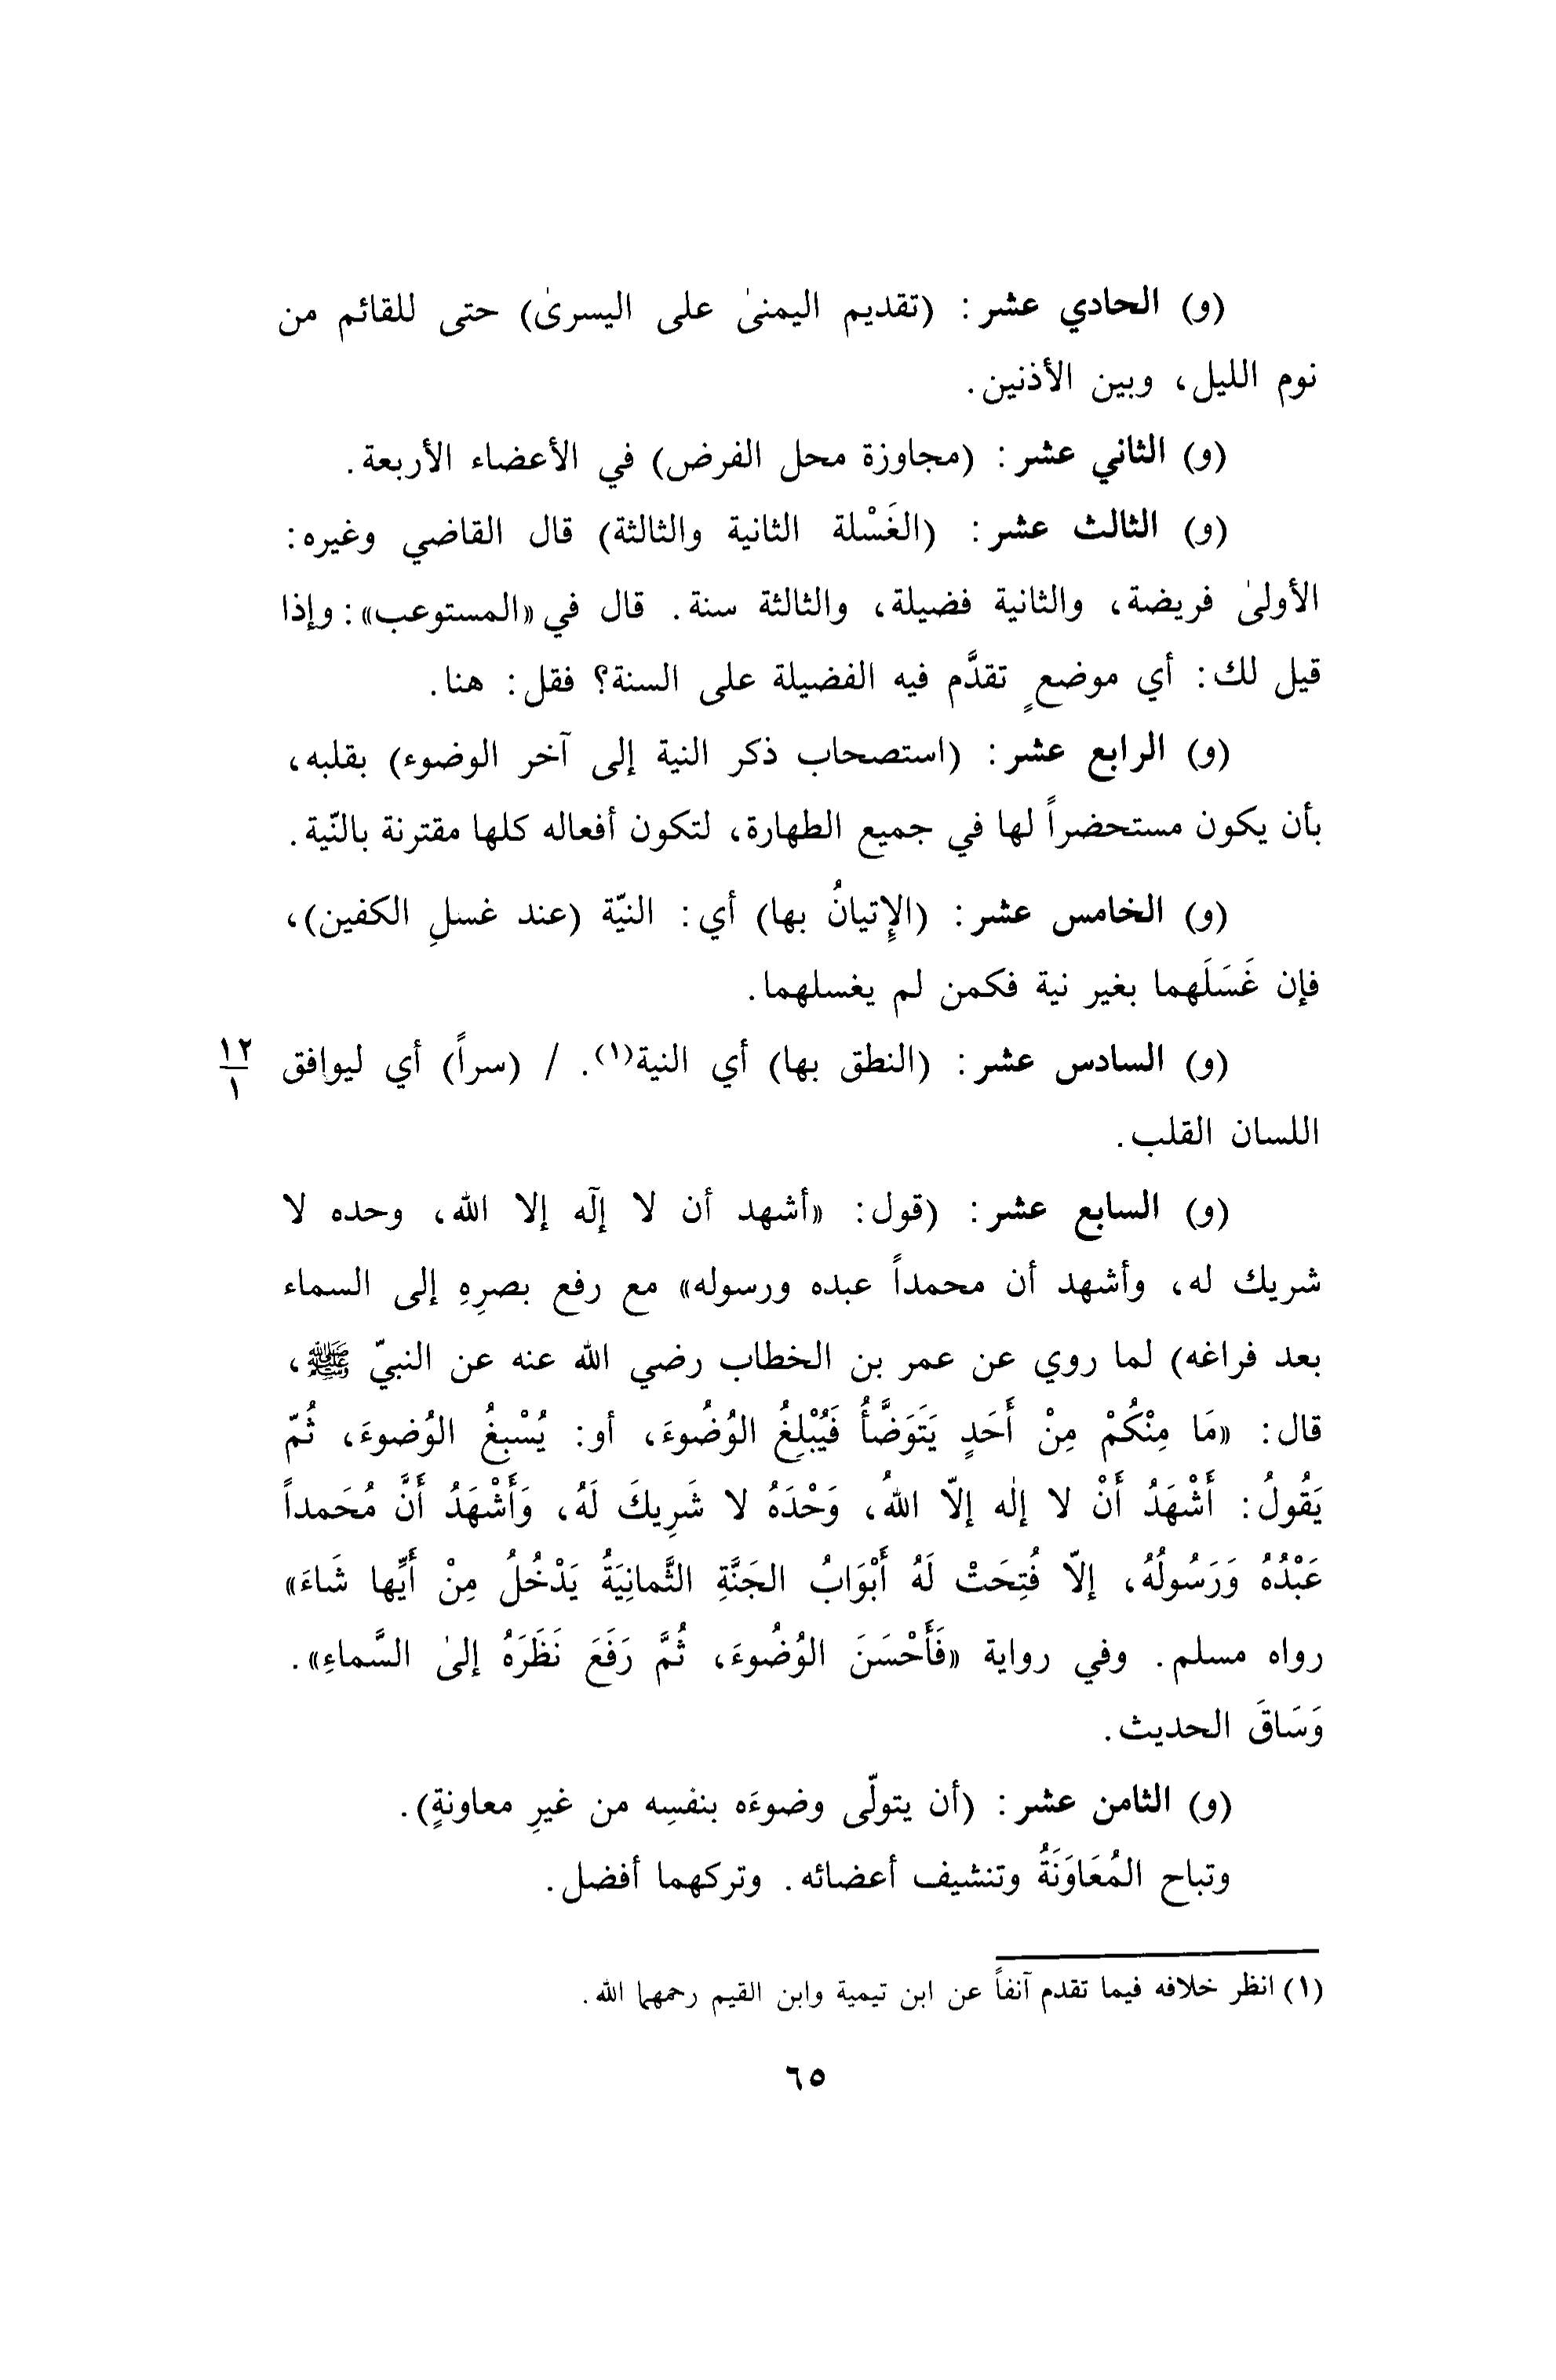 (و) الحادي عشر: (تقديم اليمنىٰ على اليسرىٰ) حتى للقائم من
نوم الليل، وبين الأذنين.
(و) الثاني عشر: (مجاوزة محل الفرض) في الأعضاء الأربعة.
(و) الثالث عشر: (الغَسْلة الثانية والثالثة) قال القاضي وغيره:
الأولىٰ فريضة، والثانية فضيلة، والثالثة سنة. قال في «المستوعب»: وإذا
قيل لك: أي موضعٍ تقدَّم فيه الفضيلة على السنة؟ فقل: هنا.
(و) الرابع عشر: (استصحاب ذكر النية إلى آخر الوضوء) بقلبه،
بأن يكون مستحضراً لها في جميع الطهارة، لتكون أفعاله كلها مقترنة بالنّية.
(و) الخامس عشر: (الإِتيانُ بها) أي: النيّة (عند غسلِ الكفين)،
فإن غَسَلَهما بغير نية فكمن لم يغسلهما.
(و) السادس عشر: (النطق بها) أي النية(١). / (سراً) أي ليوافق
١٢
١
اللسان القلب.
(و) السابع عشر: (قول: «أشهد أن لا إلٓه إلا الله، وحده لا
شريك له، وأشهد أن محمداً عبده ورسوله» مع رفع بصرِهِ إلى السماء
بعد فراغه) لما روي عن عمر بن الخطاب رضي الله عنه عن النبيّ ﷺ،
قال: «مَا مِنْكُمْ مِنْ أَحَدٍ يَتَوَضَّأُ فَيُبْلِغُ الوُضُوءَ، أو: يُسْبِغُ الوُضوءَ، ثُمّ
يَقُولُ: أَشْهَدُ أَنْ لا إلٰه إلاّ اللهُ، وَحْدَهُ لا شَرِيكَ لَهُ، وَأَشْهَدُ أَنَّ مُحَمداً
عَبْدُهُ وَرَسُولُهُ، إلاّ فُتِحَتْ لَهُ أَبْوَابُ الجَنَّةِ الثَّمانِيَةُ يَدْخُلُ مِنْ أَيِّها شَاءَ»
رواه مسلم. وفي رواية «فَأَحْسَنَ الوُضُوءَ، ثُمَّ رَفَعَ نَظَرَهُ إلىٰ السَّماءِ».
وَسَاقَ الحديث.
(و) الثامن عشر: (أن يتولّى وضوءَه بنفسِه من غيرِ معاونةٍ).
وتباح المُعَاوَنَةُ وتنشيف أعضائه. وتركهما أفضل.
(١) انظر خلافه فيما تقدم آنفاً عن ابن تيمية وابن القيم رحمهما الله.
٦٥